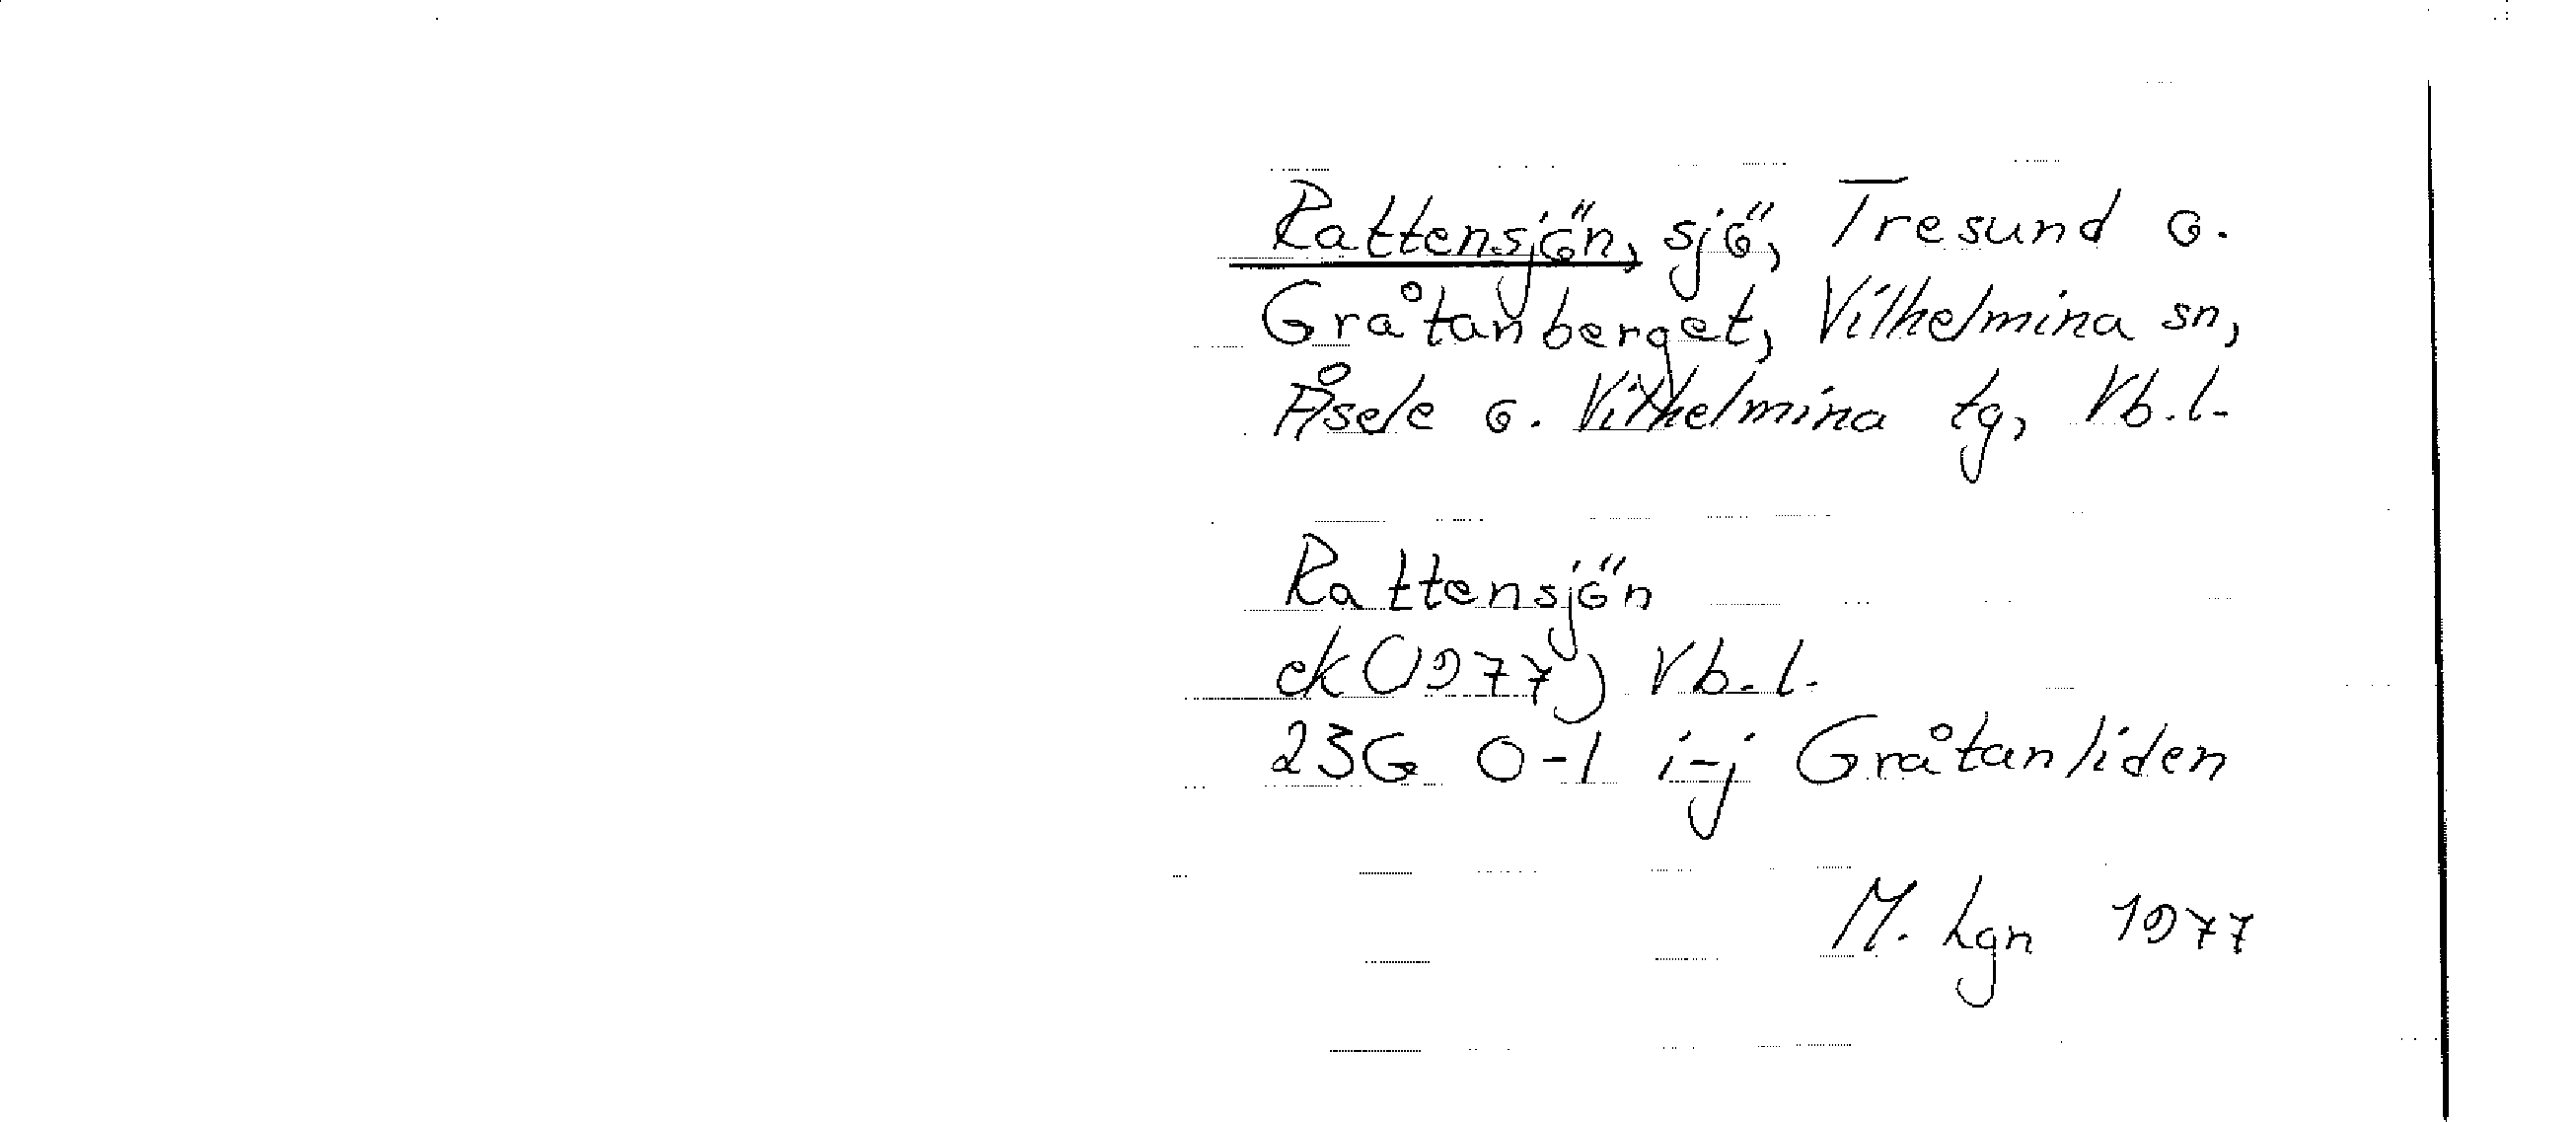 Rattensjön, sjö, Tresund o.
Gråtanberget, Vilhelmina sn,
Åsele o. Vilhelmina tg, Vb.l.
Rattensjön
ek (1977) Vb.l.
23G 0-1 i-j Gråtanliden
M. Lgn 1977